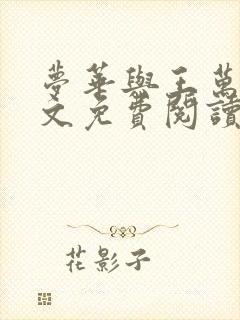 夢華與王萬
文免費閱讀
花影子